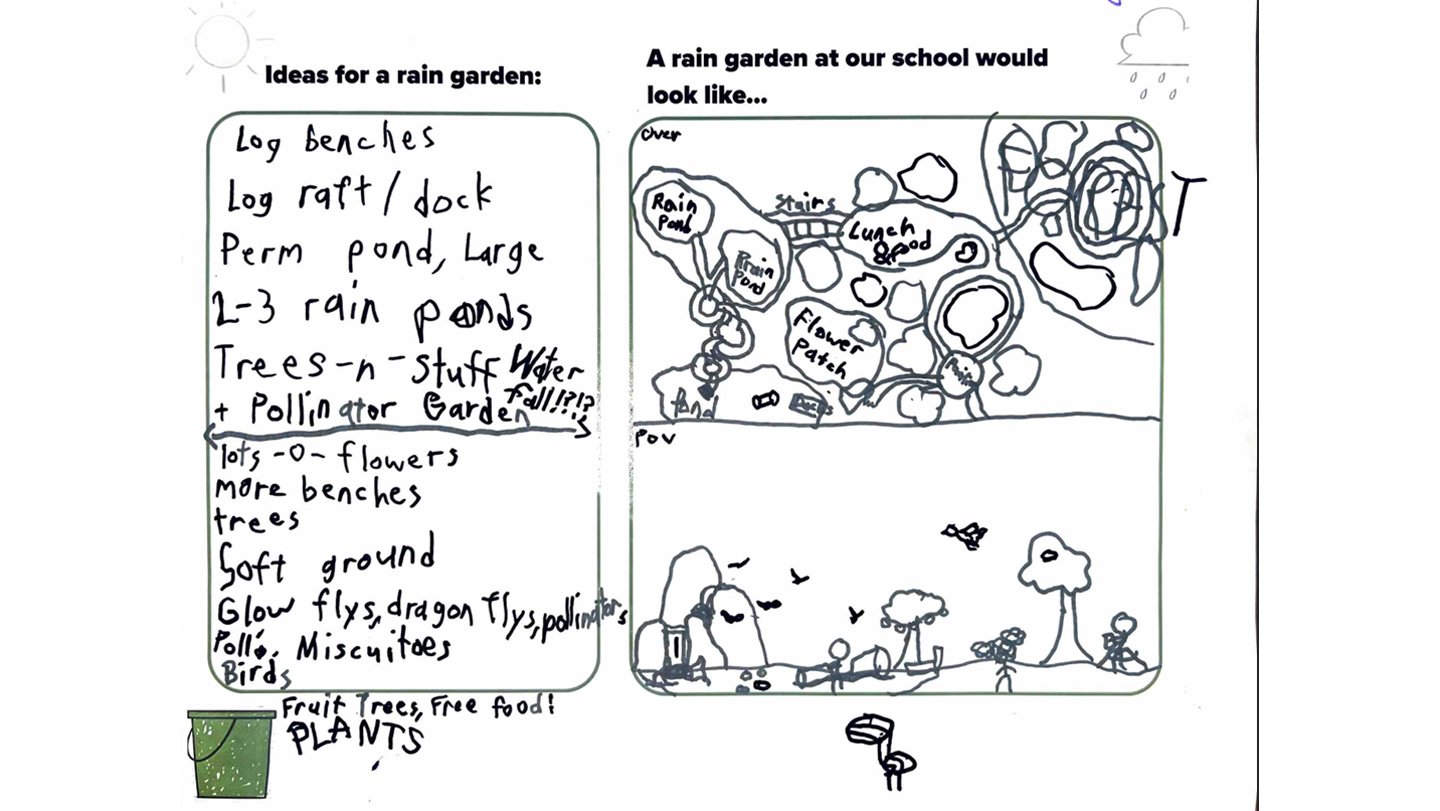 Ideas for a rain garden:
Log benches
Log raft / dock
Perm pond, Large
2-3 rain ponds
Trees-n-stuff Water
fall!?!?
+ Pollinator Garden
lots-o-flowers
more benches
trees
Soft ground
Glow flys, dragon flys, pollinators
Polli. Miscuitoes
Birds
Fruit Trees, Free food!
PLANTS
A rain garden at our school would
look like...
Over
Rain
Pond
Rain
Pond
Stairs
Lunch
&food
Flower
Patch
Pond
T
POV